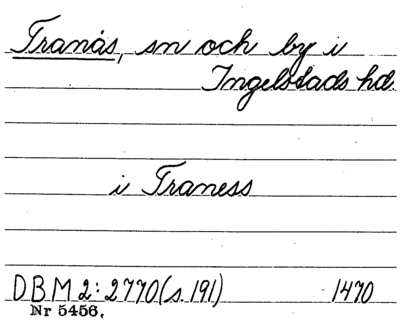 Tranås, sn och by i
Ingelstads hd.
i Traness
DBM 2: 2770 (s. 191) 1470
Nr 5456.